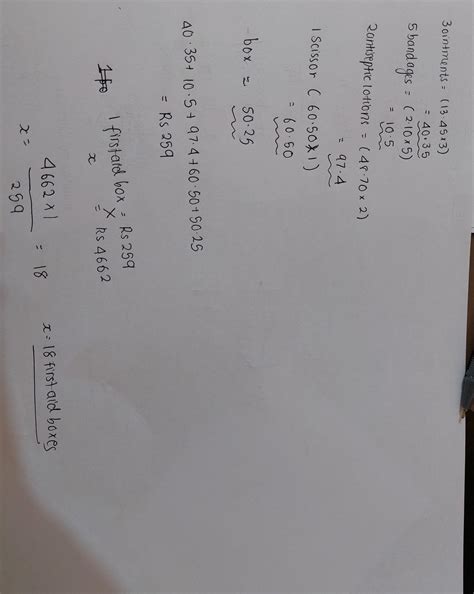 3 ointments = (13.45x3)
= 40.35
5 bandages = (2.10x5)
= 10.5
2 antiseptic lotions = (48.70x2)
= 97.4
1 scissor (60.50x1)
= 60.50
box = 50.25
40.35+10.5+97.4+60.50+50.25
= Rs 259
1 first aid box = Rs 259
x = Rs 4662
x = 4662x1 / 259 = 18
x=18 first aid boxes